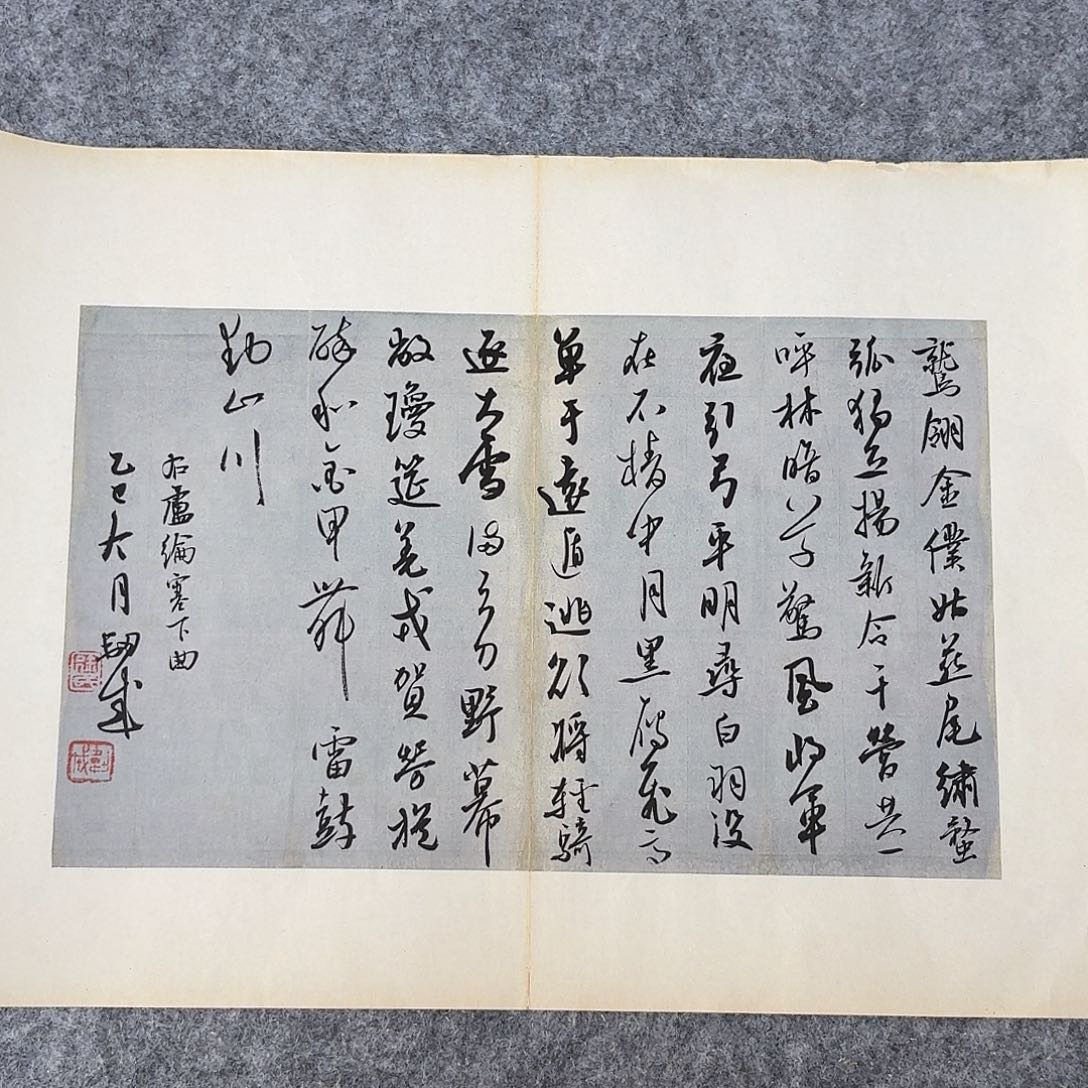 鷲翎金僕姑燕尾繡蝥
弧獨立揚新令千營共一
呼林暗草驚風將軍
夜引弓平明尋白羽沒
在石棱中月黑雁飛高
單于遠遁逃欲將輕騎
逐大雪滿弓刀野幕
敞瓊筵羌戎賀勞旋
醉和金甲舞雷鼓
動山川
右盧綸塞下曲
乙巳六月